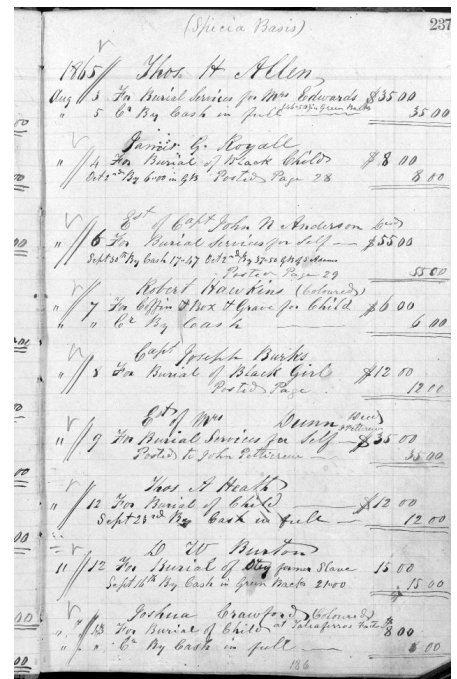 (Specia Basis)
237
1865 Thos. H Allen
Aug 3 For Burial Services for Mrs Edwards $35 00
" 5 Cr By Cash in full 35 00
James G. Royall
" 4 For Burial of Black Child $8 00
Oct 2nd By 6.00 in GB Posted Page 28 8 00
Est of Capt John N Anderson Decd
" 6 For Burial Services for Self — $55 00
Sept 30th By Cash 17.47 Oct 2nd By 37.50
Posted Page 29 55 00
Robert Hawkins (Coloured)
" 7 For Coffin & Box & Grave for Child $6 00
" " Cr By Cash 6 00
Capt Joseph Burks
" 8 For Burial of Black Girl $12 00
Posted Page 12 00
Est of Mrs Dunn Decd
" 9 For Burial Services for Self — $35 00
Posted to John Petticrew 35 00
Thos A Heath
" 12 For Burial of Child $12 00
Sept 23rd By Cash in full — 12 00
D W Burton
" 12 For Burial of Slave 15 00
Sept 16th By Cash in Green Backs 21.00 15 00
Joshua Crawford (Coloured)
" 13 For Burial of Child at Taliaferros 8 00
" " Cr By Cash in full 8 00
186